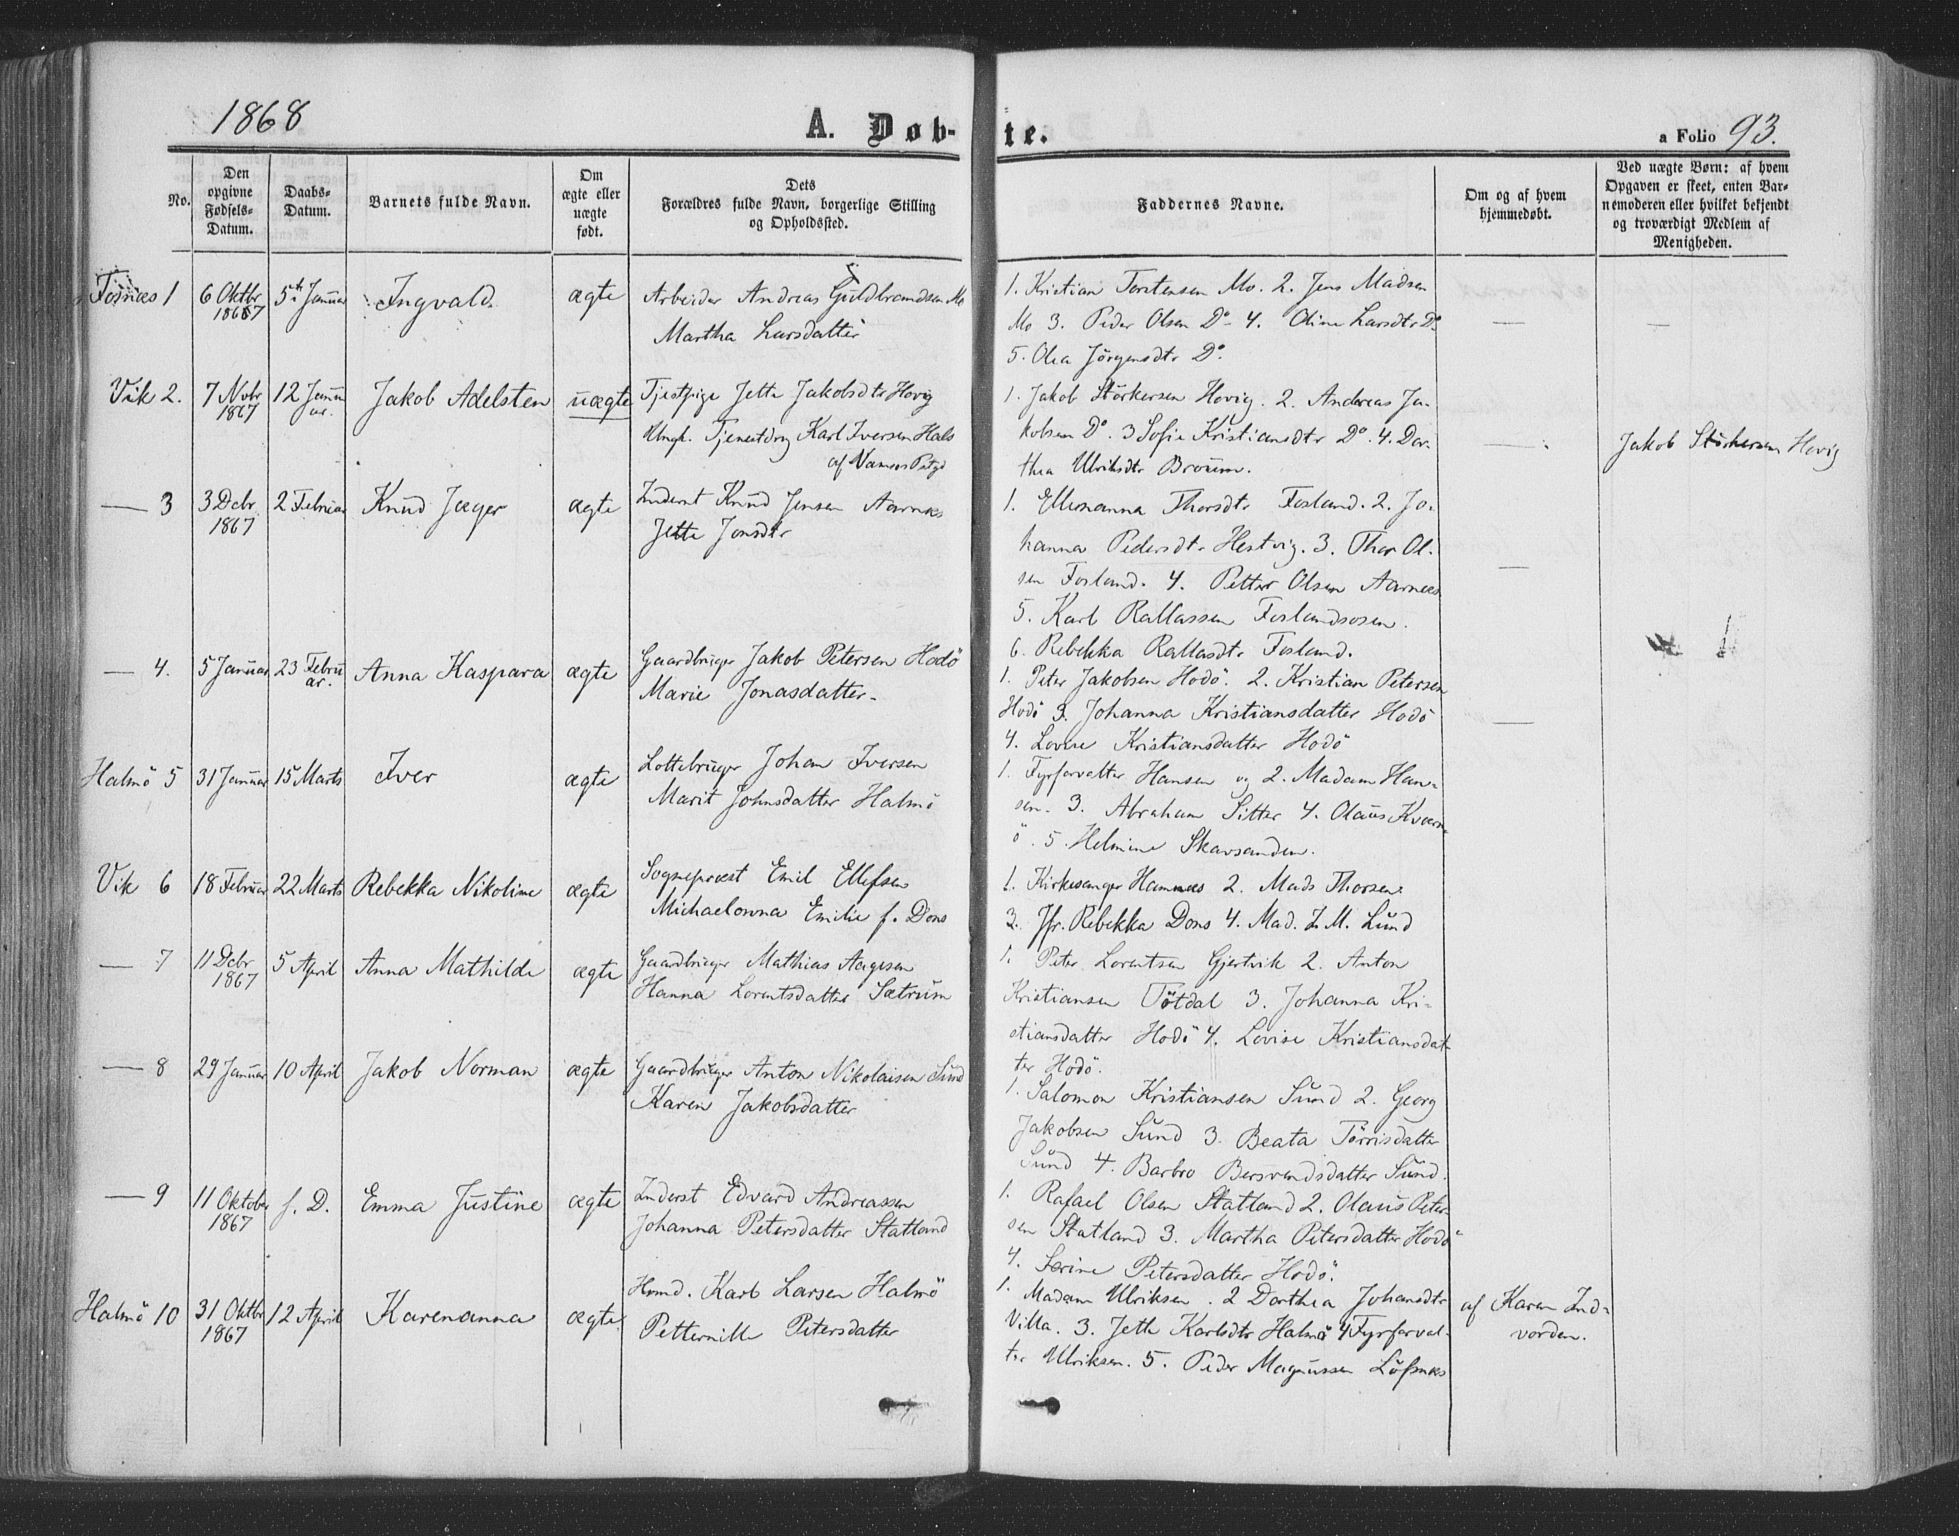 1868
A. Døb-
te.
a Folio 93.
No.
Den
opgivne
Fødsels-
Datum.
Daabs-
Datum.
Barnets fulde Navn.
Om
ægte eller
uægte
født.
Dets
Forældres fulde Navn, borgerlige Stilling
og Opholdssted.
Faddernes Navne.
Om og af hvem
hjemmedøbt.
Ved uægte Børn: af hvem
Opgaven er skeet, enten Bar-
nemoderen eller hvilket bekjendt
og troværdigt Medlem af
Menigheden.
Fosnæs 1
6 Oktbr
1867
5te Januar
Ingvald
ægte
Arbeider Andreas Guldbrandsen Mo
Martha Larsdatter
1. Kristian Torstensen Mo. 2. Jens Madsen
Mo 3. Peder Olsen Do 4. Oline Larsdtr Do
5. Olea Jörgensdtr Do.
Vik 2.
7 Novbr
1867
12 Janu
ar.
Jakob Adelsten
uægte
Tjestpige Jette Jakobsdtr Hovig
Ungk. Tjenestdrg Karl Iversen Hals
af Namsos Pstgd
1. Jakob Størkersen Hovig. 2. Andreas Ja-
kobsen Do. 3 Sofie Kristiansdtr Do. 4. Dor-
thea Ulriksdtr Broum.
Jakob Størkersen Hovig
— 3
3 Debr
1867
2 Februar
Knud Jæger
ægte
Inderst Knud Jensen Aarnæs
Jette Jonsdtr
1. Ellenanna Thorsdtr Fosland. 2. Jo-
hanna Pedersdtr Hestvig. 3. Thor Ol-
sen Fosland. 4. Petter Olsen Aarnæs
5. Karl Rallassen Foslandsosen.
6. Rebekka Rallasdtr Fosland.
— 4.
5 Januar
23 Febru
ar.
Anna Kaspara
ægte
Gaardbruger Jakob Petersen Hodö
Marie Jonasdatter
1. Peter Jakobsen Hodö. 2. Kristian Petersen
Hodö 3. Johanna Kristiansdatter Hodö
4. Lovise Kristiansdatter Hodö
Halmö 5
31 Januar
15 Marts
Iver
ægte
Lottebruger Johan Iversen
Marit Johnsdatter Halmö
1. Fyrforvalter Hansen og 2. Madam Han-
sen. 3. Abraham Sitter 4. Olaus Kværn-
ö. 5. Helmine Skavsanden.
Vik 6
18 Februar
22 Marts
Rebekka Nikoline
ægte
Sognepræst Emil Ellefsen
Michaelowna Emilie f. Dons
1. Kirkesanger Hamnes 2. Mads Thorsen.
3. Jfr. Rebekka Dons 4. Mad. L M. Lund
— 7
11 Debr
1867
5 April
Anna Mathilde
ægte
Gaardbruger Mathias Aagesen
Hanna Lorentsdatter Sætrum
1. Peter Lorentsen Gjertvik 2. Anton
Kristiansen Tötdal 3. Johanna Kri-
stiansdatter Hodö 4. Lovise Kristiansdat-
ter Hodö.
— 8
29 Januar
10 April
Jakob Norman
ægte
Gaardbruger Anton Nikolaisen Sund
Karen Jakobsdatter
1. Salomon Kristiansen Sund 2. Georg
Jakobsen Sund 3. Beata Törrisdatter
Sund 4. Barbro Bersvendsdatter Sund.
— 9
11 Oktober
1867
s. D.
Emma Justine
ægte
Inderst Edvard Andreassen
Johanna Petersdatter Statland
1. Rafael Olsen Statland 2. Olaus Peter-
sen Statland 3. Martha Petersdatter Hodö
4. Serine Petersdatter Hodö.
Halmö 10
31 Oktbr
1867
12 April
Karenanna
ægte
Hmd. Karl Larsen Halmö
Petternille Petersdatter
1. Madam Ulriksen. 2 Dorthea Johansdtr
Villa. 3. Jette Karlsdtr Halmö 4 Fyrforval-
ter Ulriksen. 5. Peder Magnussen Löfsnæs
af Karen Ind-
vorden.